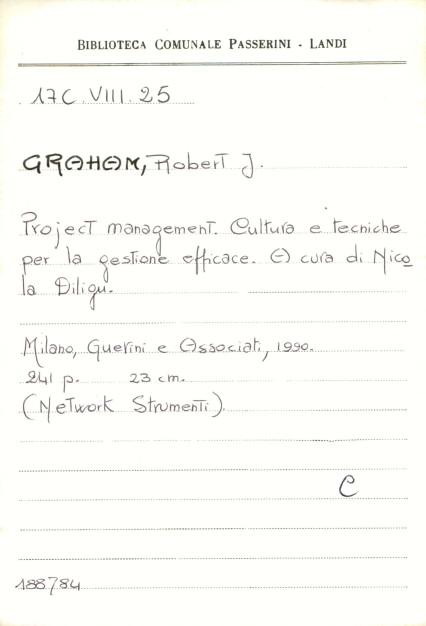 BIBLIOTECA COMUNALE PASSERINI - LANDI
17C.VIII.25
GRAHAM, Robert J.
Project management. Cultura e tecniche
per la gestione efficace. A cura di Nico
la Diligu.
Milano, Guerini e Associati, 1990.
241 p. 23 cm.
(Network Strumenti).
C
188784